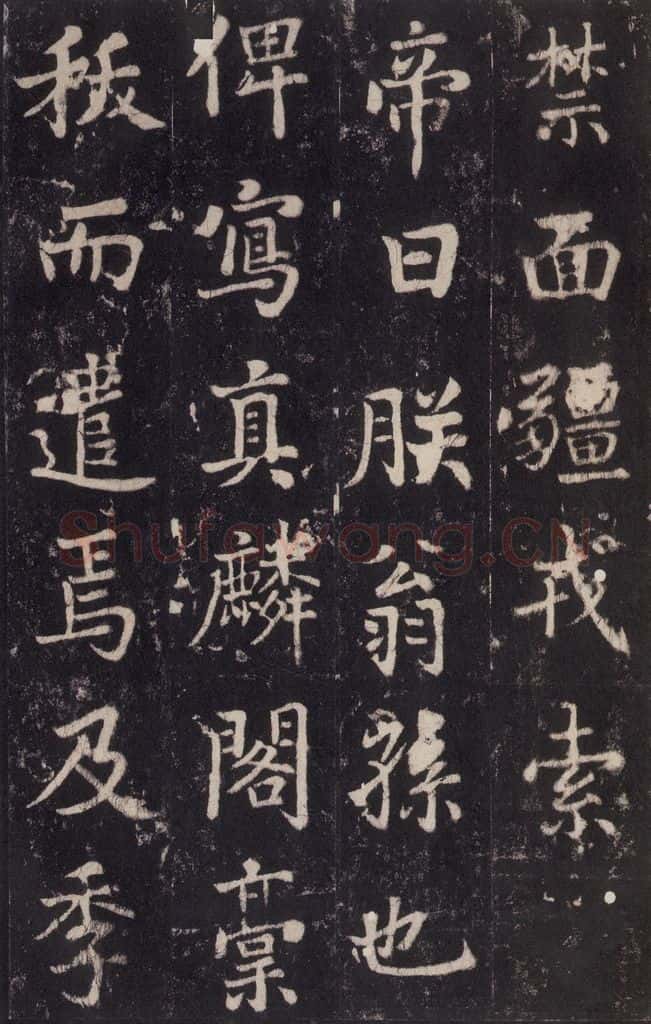 禁面疆戎索
帝曰朕翁孫也
俾寫真麟閣
秩而遣焉及季
Shufawang.CN